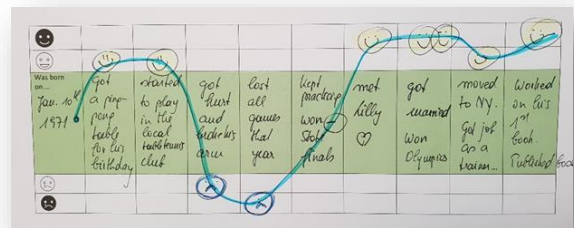 Was born
on...
Jan. 10th
1971
got
a ping-
pong
table
for his
birthday
started
to play
in the
local
table tennis
club
got
hurt
and
broke his
arm
lost
all
games
that
year
Kept
practicing
won
State
finals
met
Lilly
got
married
won
Olympics
moved
to NY.
Got job
as a
trainer...
Worked
on his
1st
book.
Published book